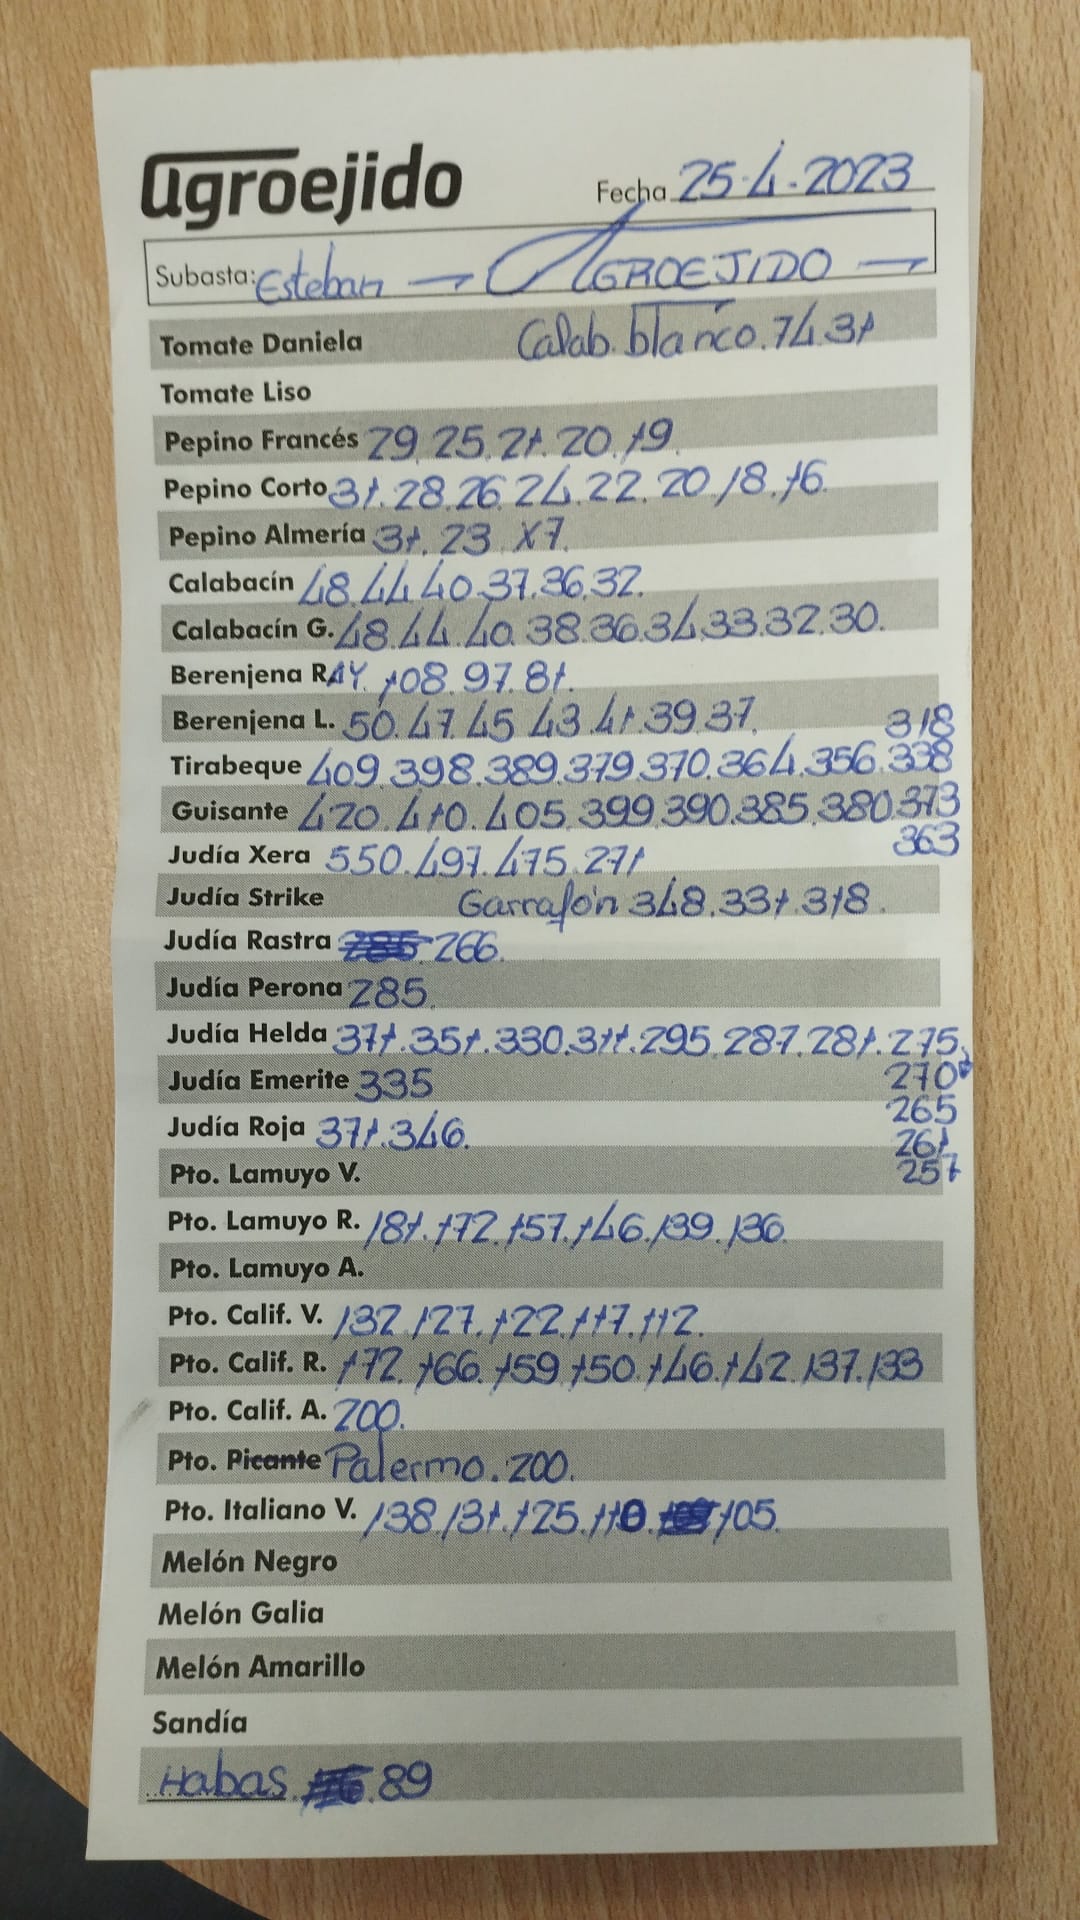 agroejido
Fecha 25-4-2023
Subasta: Esteban → AGROEJIDO →
Tomate Daniela Calab. blanco. 74.31
Tomate Liso
Pepino Francés 29. 25. 21. 20. 19.
Pepino Corto 31. 28. 26. 24. 22. 20. 18. 16.
Pepino Almería 31. 23. 17.
Calabacín 48. 44. 40. 37. 36. 32.
Calabacín G. 48. 44. 40. 38. 36. 34. 33. 32. 30.
Berenjena RAY. 108. 97. 81.
Berenjena L. 50. 47. 45. 43. 41. 39. 37. 318
Tirabeque 409. 398. 389. 379. 370. 364. 356. 338
Guisante 420. 410. 405. 399. 390. 385. 380. 373
363
Judía Xera 550. 497. 475. 271
Judía Strike Garrafón 348. 331. 318.
Judía Rastra 266.
Judía Perona 285.
Judía Helda 371. 351. 330. 311. 295. 287. 281. 275.
270
Judía Emerite 335
265
Judía Roja 371. 346.
261
257
Pto. Lamuyo V.
Pto. Lamuyo R. 181. 172. 157. 146. 139. 136.
Pto. Lamuyo A.
Pto. Calif. V. 132. 127. 122. 117. 112.
Pto. Calif. R. 172. 166. 159. 150. 146. 142. 137. 133
Pto. Calif. A. 200.
Pto. Picante Palermo. 200.
Pto. Italiano V. 138. 131. 125. 110. 105.
Melón Negro
Melón Galia
Melón Amarillo
Sandía
Habas. 89